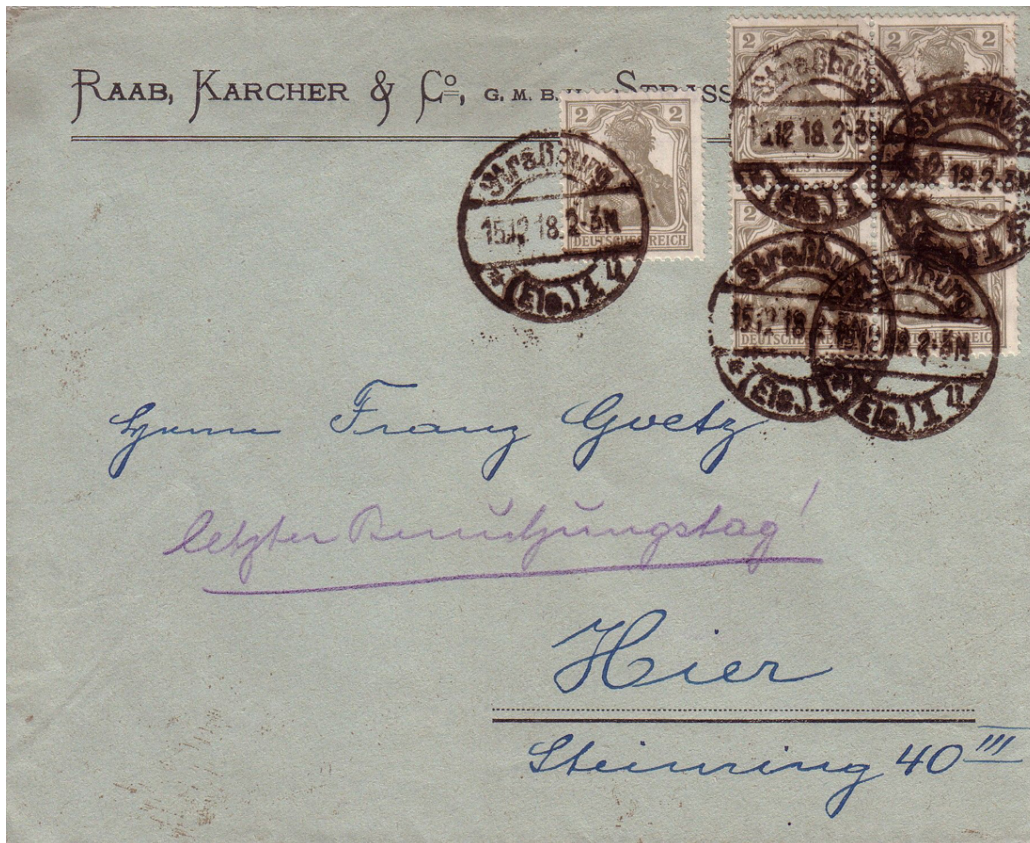 RAAB, KARCHER & Co, G. M. B. H. STRASS
2 2
2 2
2 2
DEUTSCHES REICH
Straßburg
15.12 18. 2-3N
* (Els.) 1 u
Straßburg
15.12 18. 2-3N
* (Els.) 1
Straßburg
15.12 18. 2-3N
Straßburg
15.12 18. 2-3N
* (Els.) 1
DEUTSCHES REICH
Straßburg
18. 2-3N
(Els.) 1 u
Herrn Franz Goetz
letzter Benutzungstag!
Hier
Steinring 40 III